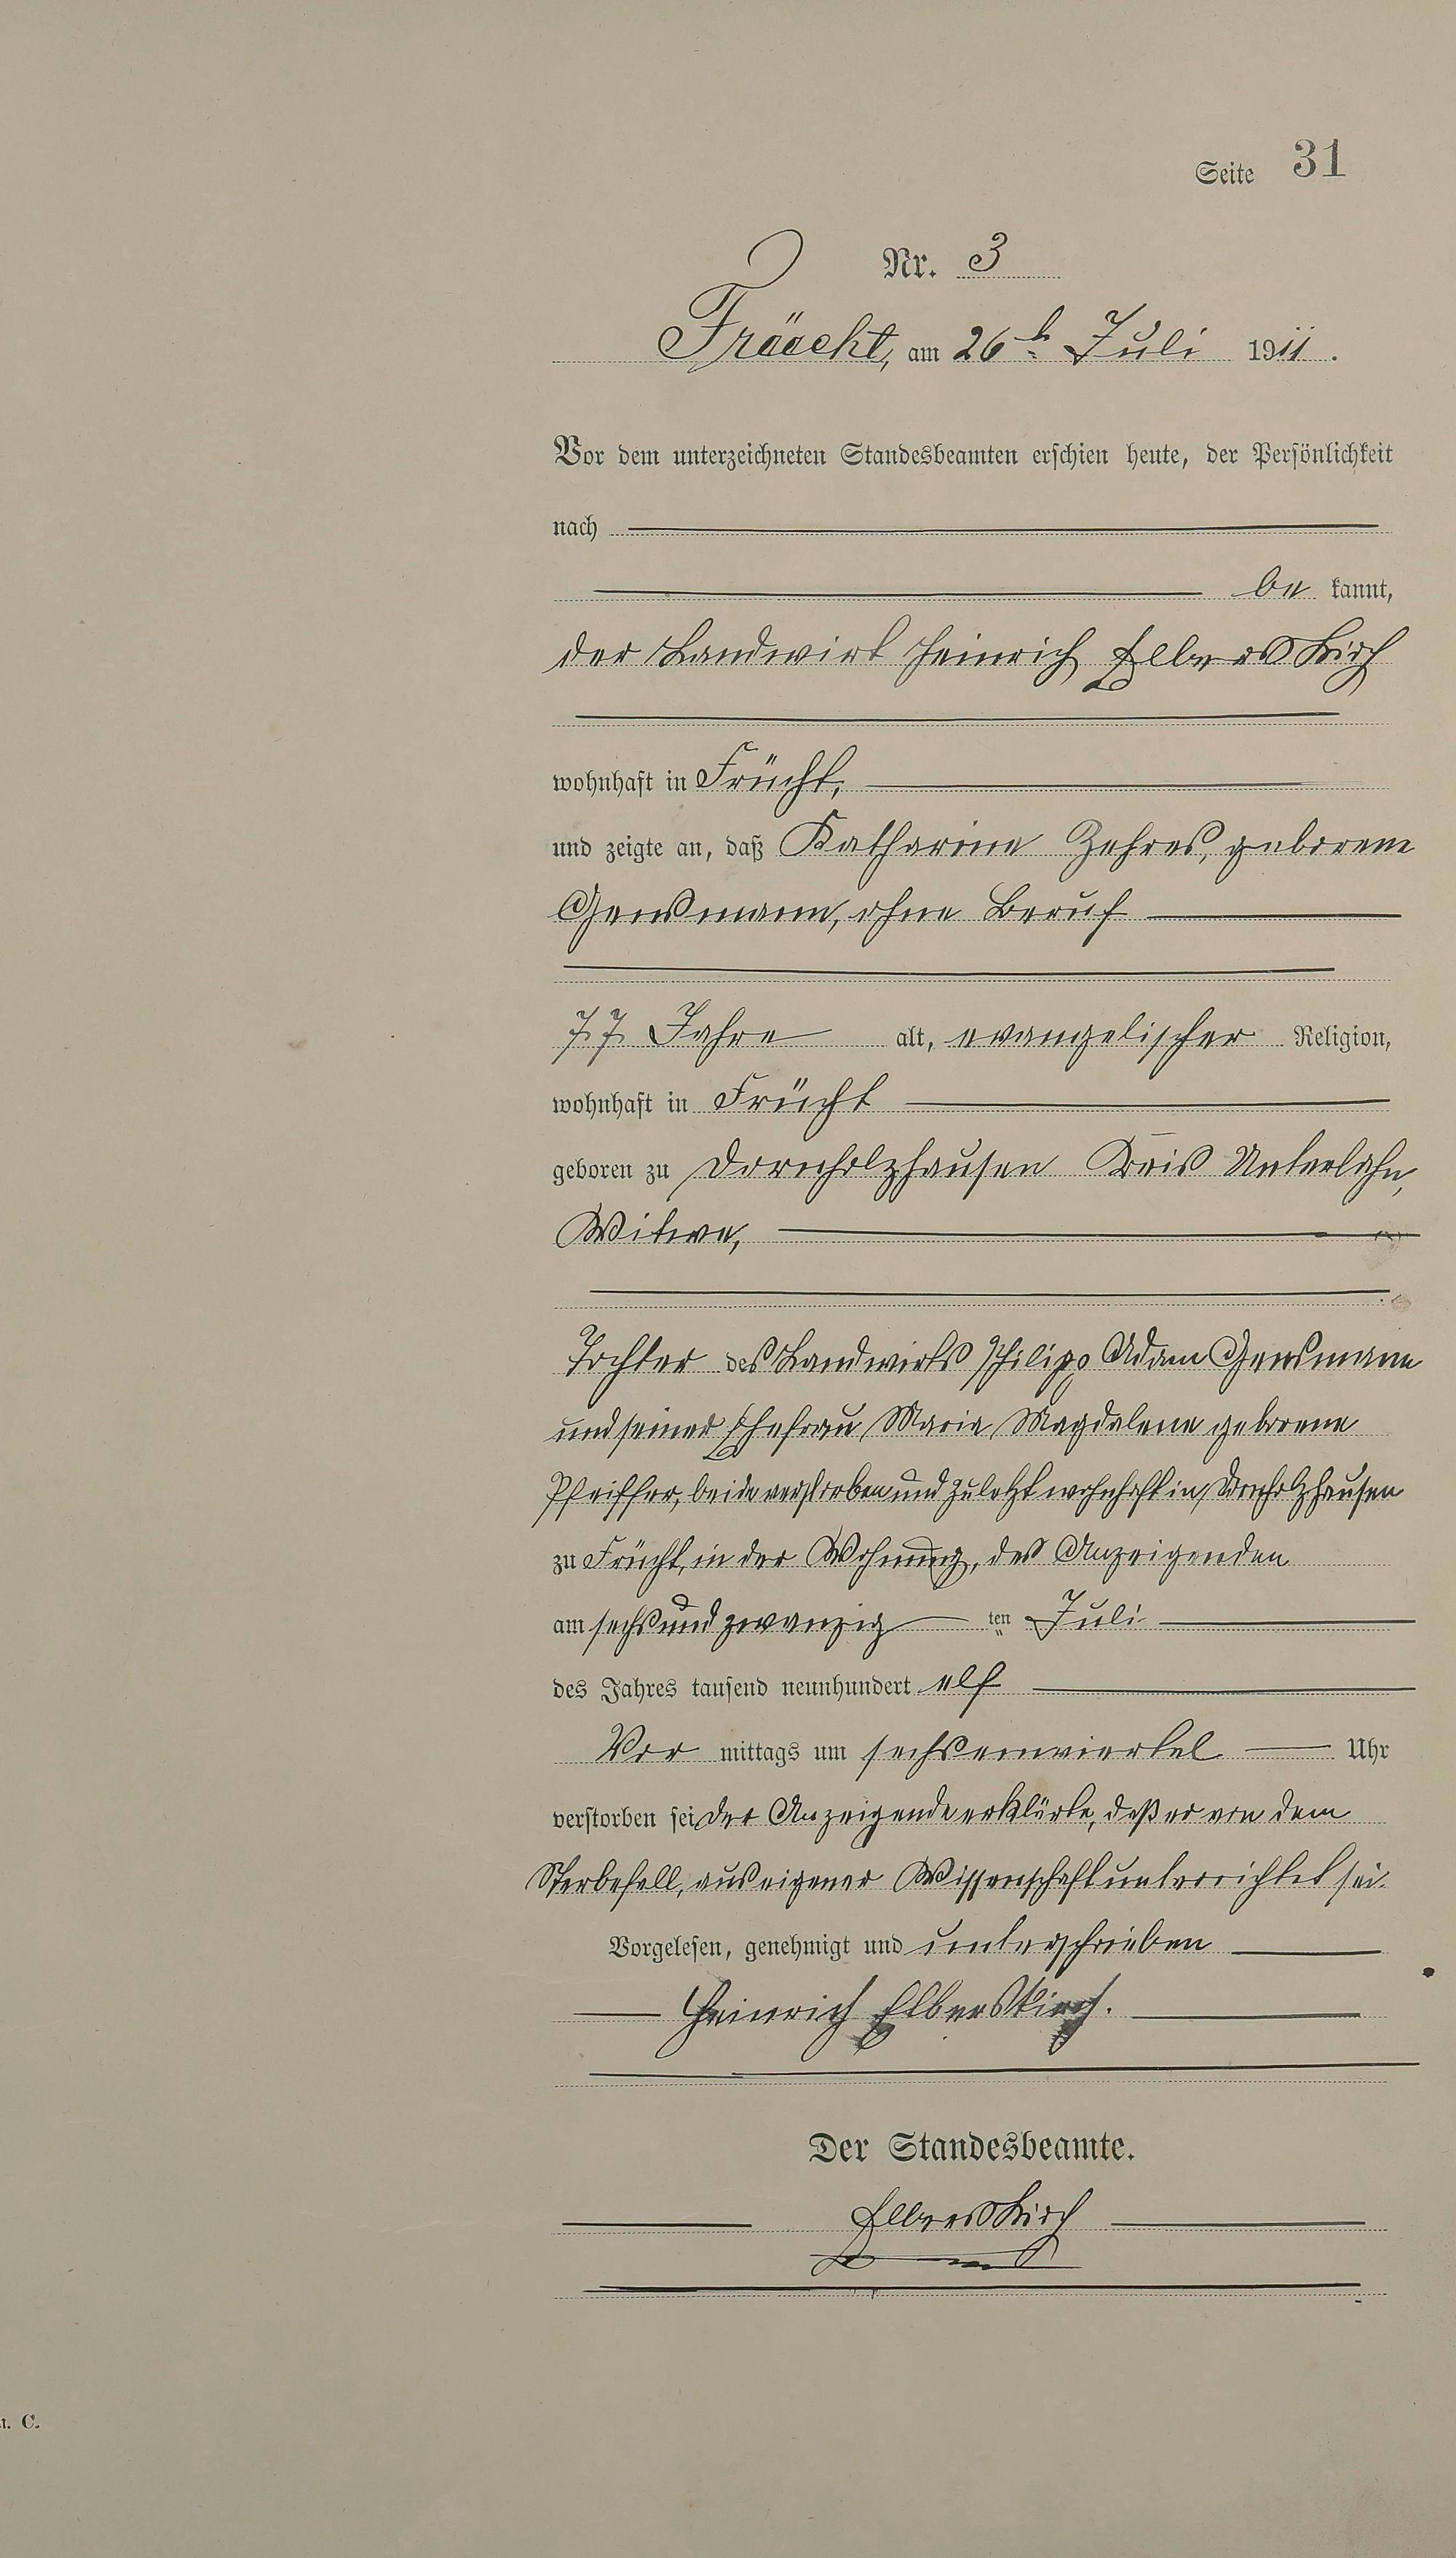 Seite 31
Nr. 3
Früecht, am 26t. Juli 1911.
Vor dem unterzeichneten Standesbeamten erschien heute, der Persönlichkeit
nach
be kannt,
der Landwirt Heinrich Elberskirch
wohnhaft in Frücht,
und zeigte an, daß Katharine Zehres, geborene
Gensmann, ohne Beruf
77 Jahre alt, evangelischer Religion,
wohnhaft in Frücht
geboren zu Dornholzhausen Kreis Unterlahn,
Witwe,
Tochter des Landwirts Philipp Adam Gensmann
und seiner Ehefrau Maria Magdalene geborene
Pfeiffer, beide verstorben und zuletzt wohnhaft in Dornholzhausen
zu Frücht, in der Wohnung, des Anzeigenden
am sechsundzwanzig ten Juli
des Jahres tausend neunhundert elf
Vor mittags um sechseinviertel Uhr
verstorben sei Der Anzeigende erklärte, daß er von dem
Sterbefall, aus eigener Wissenschaft unterrichtet sei.
Vorgelesen, genehmigt und unterschrieben
Heinrich Elberskirch.
Der Standesbeamte.
Elberskirch
C.